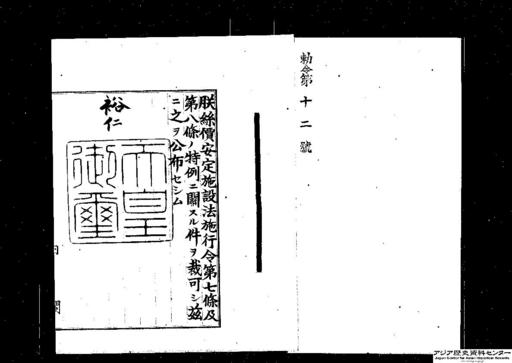 勅令第十二號
朕絲價安定施設法施行令第七條及
第八條ノ特例ニ關スル件ヲ裁可シ茲
ニ之ヲ公布セシム
裕仁
天皇
御璽
アジア歴史資料センター
Japan Center for Asian Historical Records